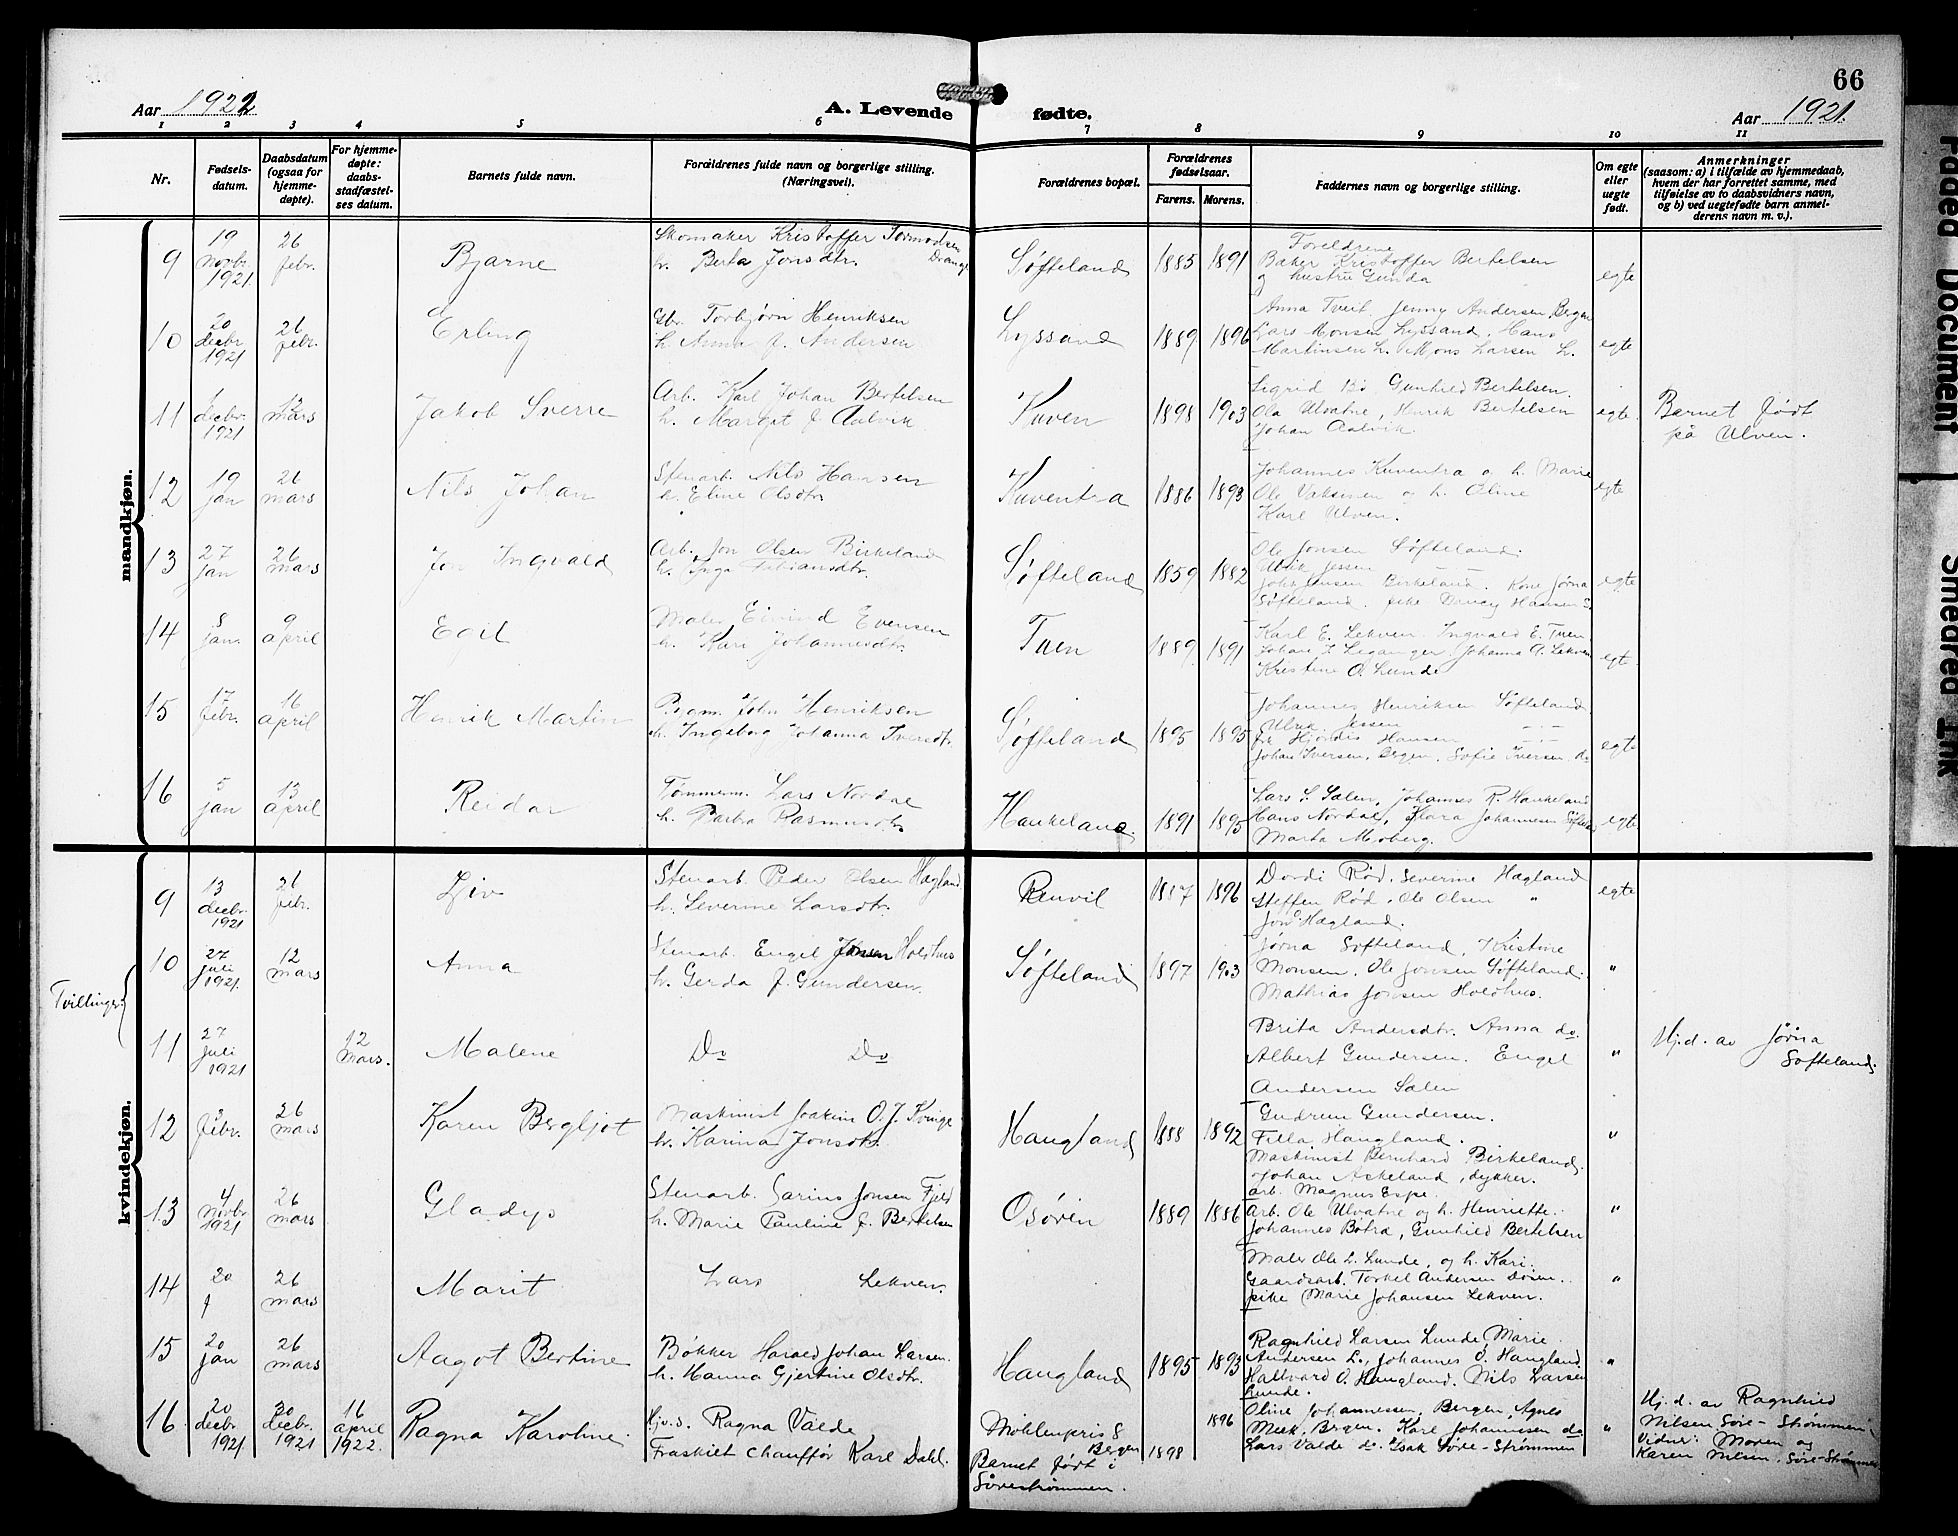 66
Aar 1922
A. Levende fødte.
Aar 1921.
1 2 3 4 5 6 7 8 9 10 11
Nr.
Fødsels-
datum.
Daabsdatum
(ogsaa for
hjemme-
døpte).
For hjemme-
døpte:
daabs-
stadfæstel-
ses datum.
Barnets fulde navn.
Forældrenes fulde navn og borgerlige stilling.
(Næringsvei).
Forældrenes bopæl.
Forældrenes
fødselsaar.
Farens. Morens.
Faddernes navn og borgerlige stilling.
Om egte
eller
uegte
født.
Anmerkninger
(saasom: a) i tilfælde av hjemmedaab,
hvem der har forrettet samme, med
tilføielse av to daabsvidners navn,
og b) ved uegtefødte barn anmel-
derens navn m. v.).
mandkjøn.
9
19
novbr.
1921.
26
febr.
Bjarne
Skomaker Kristoffer Tormodsen
h. Berta Jonsdtr. Drange
Søfteland
1885
1891
Foreldrene
Baker Kristoffer Bertelsen
og hustru Gunda
egte
10
20
decbr
1921
26
febr.
Erling
Gbr. Torbjørn Henriksen
h. Anna f. Andersen
Lyssand
1889
1896
Anna Tveit, Jenny Andersen, Bergen
Lars Monsen Lyssand, Hans
Martinsen L. Mons Larsen L.
egte
11
1
decbr.
1921
12
mars
Jakob Sverre
Arb. Karl Johan Bertelsen
h. Margit f. Aalvik
Kuven
1898
1903
Sigrid Bø Gunhild Bertelsen.
Ola Ulvatne, Henrik Bertelsen
Johan Aalvik.
egte.
Barnet født
på Ulven.
12
19
jan
26
mars
Nils Johan
Stenarb. Nils Hansen
h. Eline Olsdtr
Kuventra
1886
1893
Johannes Kuventra og h. Marie
Ole Vaksinen og h. Oline
Karl Ulven.
egte
13
27
jan
26
mars
Jon Ingvald
Arb. Jon Olsen Birkeland
h. Inga Fabiansdtr.
Søfteland
1859
1882
Ole Jonsen Søfteland.
Ulrik Jessen
Joh. Jensen Birkeland. Kone Jørna
Søfteland. pike Hansen S.
egte
14
8
jan.
9
april
Egil
Maler Eivind Evensen
h. Kari Johannesdtr.
Tuen
1889
1891
Karl E. Lekven, Ingvald E. Tuen
Johan J. Leganger, Johanna A. Lekven
Kristine O. Lunde
egte.
15
17
febr.
16
april
Henrik Martin
Bygm. John Henriksen
h. Ingeborg Johanna Iversdtr.
Søfteland
1895
1895
Johannes Henriksen Søfteland.
Ulrik Jessen
frk Hjørdis Hansen
Johan Iversen, Bergen, Sofie Iversen do
egte
16
5
jan
13
april
Reidar
Tømmerm. Lars Nordal
h. Barbra Rasmusdtr
Haukeland.
1891
1895
Lars S. Salen, Johannes R. Haukeland
Hans Nordal, Klara Johannesen Søftel.
Marta Moberg.
egte
kvindekjøn.
9
13
decbr.
1921
26
febr.
Liv
Stenarb. Peder Olsen Hægland
h. Severine Larsdtr.
Renvil
1887
1896
Dordi Rød, Severine Hægland
Steffen Rød, Ole Olsen "
Jons Hægland.
egte
Tvillinger
10
27
juli
1921.
12
mars
Anna
Stenarb. Engel Jonsen Holdhus
h. Gerda f. Gundersen.
Søfteland
1897
1903
Jørna Søfteland, Kristine
Monsen, Ole Jonsen Søfteland.
Mathias Jonsen Holdhus.
"
11
27
juli
1921
12
mars.
Malene
Do Do
Brita Andersdtr. Anna do.
Albert Gundersen. Engel
Andersen Salen
"
Hj.d. av Jørna
Søfteland.
12
5
febr.
26
mars
Karen Bergljot
Maskinist Joakim O. J. Kvinge
h. Karina Jonsdtr.
Haugland
1888
1892
Gudrun Gundersen.
Filla Haugland.
Maskinist Bernhard Birkeland.
Johan Askeland, dykker.
arb. Magnus Espe.
"
13
4
novbr
1921
26
mars
Gladys
Stenarb. Sarius Jonsen Fjeld
h. Marie Pauline f. Bertelsen
Osøren
1889
1886
Arb. Ole Ulvatne og h. Henriette.
Johannes Botra, Gunhild Bertelsen
"
14
20
j
26
mars
Marit
Lars Lekven.
Maler Ole L. Lunde, og h. Kari.
Gaardsarb. Torkel Andersen Døsen.
pike Marie Johansen Lekven.
"
15
20
jan
26
mars
Aagot Bertine
Bøkker Harald Johan Larsen.
h. Hanna Gjertine Olsdtr.
Haugland
1895
1893
Ragnhild Larsen Lunde, Marie
Andersen L., Johannes O. Haugland
Hallvard O. Haugland. Nils Larsen
Lunde.
"
16
20
decbr.
1921
30
decbr.
1921
16
april
1922.
Ragna Karoline.
Hjv.s. Ragna Valde
Fraskilt Chauffør Karl Dahl.
Møhlenpris 8
Bergen
Barnet født i
Sørestrømmen.
1898
1896
Oline Johannessen, Bergen, Agnes
Musk, Bergen. Karl Johannesen do
Lars Valde do. Isak Søre-Strømmen
"
Hj.d. av Ragnhild
Nilsen Søre-Strømmen
Vidner: Moren og
Karen Nilsen. Søre-Strømmen
Faded Document
Smeared Ink